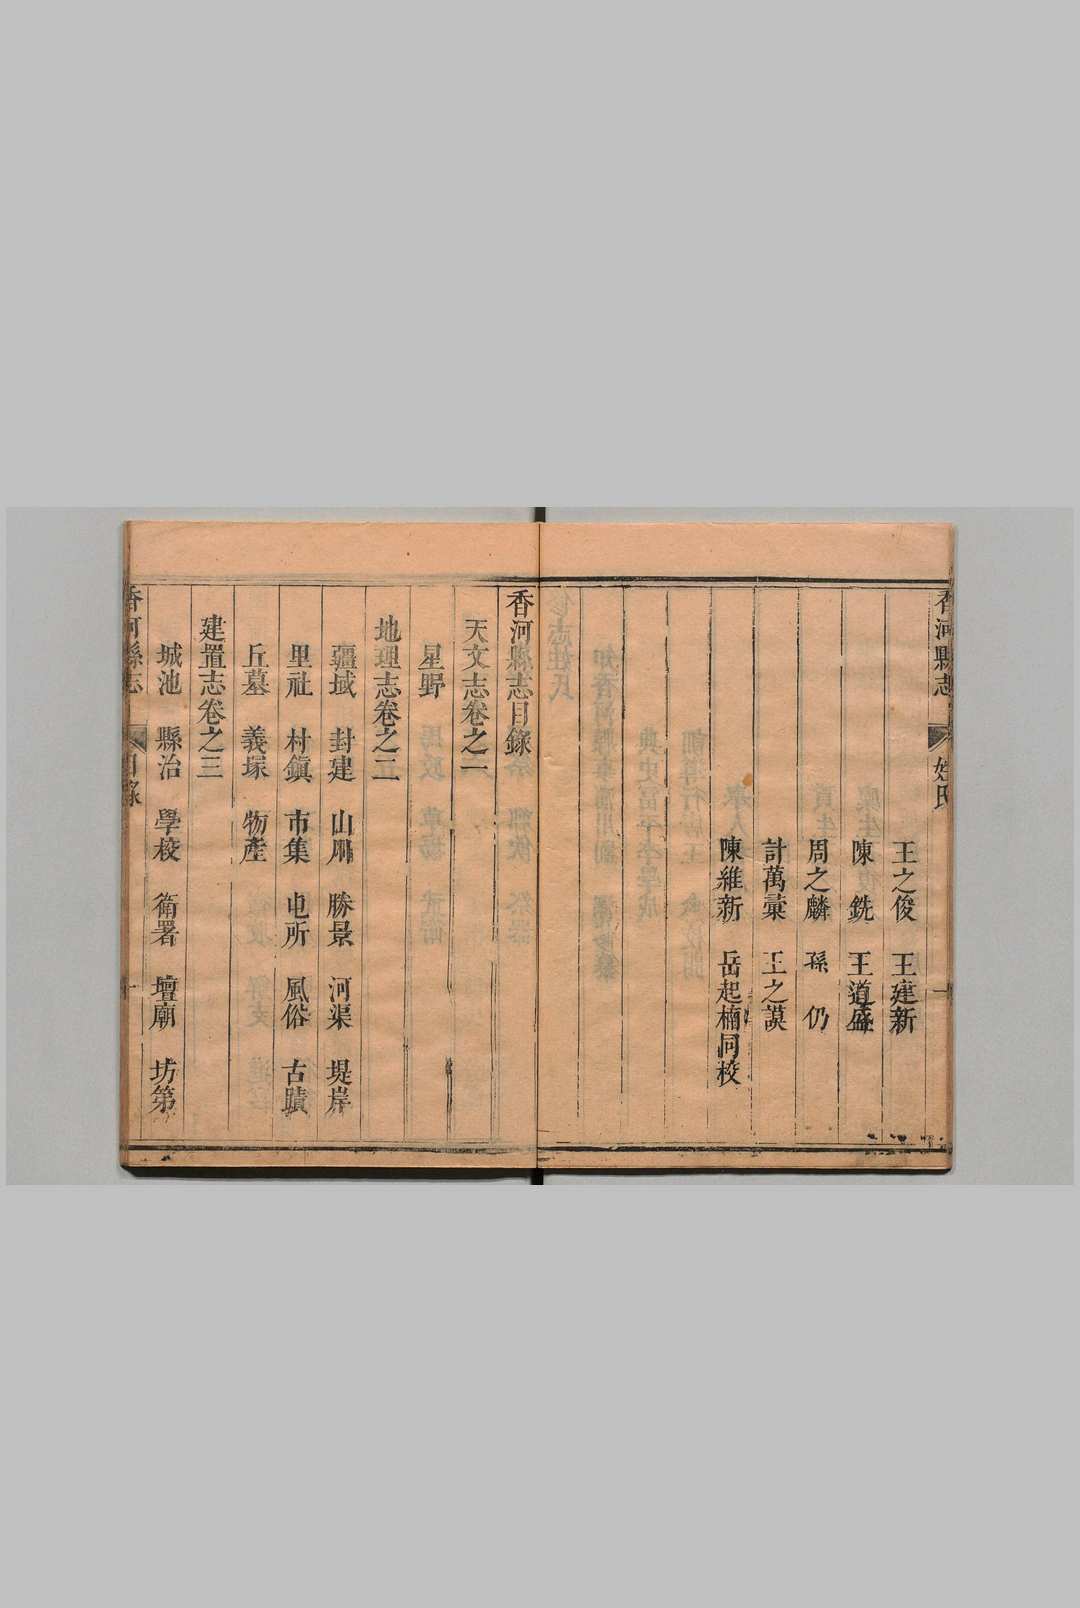 香河縣志 姓氏 一
王之俊 王建新
陳銑 王道盛
周之麟 孫仍
計萬彙 王之謨
陳維新 岳起楠同校
香河縣志目錄
天文志卷之一
星野
地理志卷之二
疆域 封建 山川 勝景 河渠 堤岸
里社 村鎮 市集 屯所 風俗 古蹟
丘墓 義塚 物產
建置志卷之三
城池 縣治 學校 衛署 壇廟 坊第
香河縣志 目錄 一